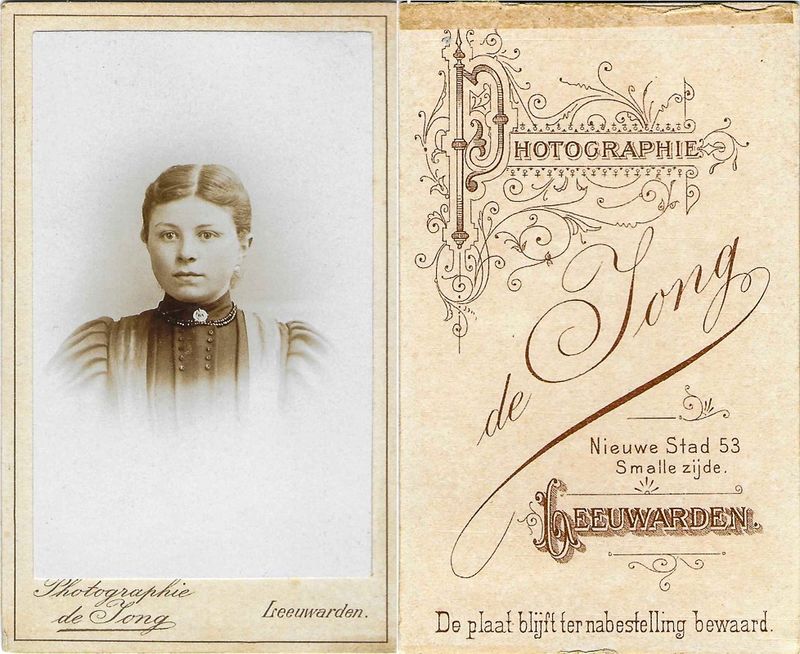 Photographie
de Jong
Leeuwarden.
PHOTOGRAPHIE
de Jong
Nieuwe Stad 53
Smalle zijde.
LEEUWARDEN.
De plaat blijft ter nabestelling bewaard.